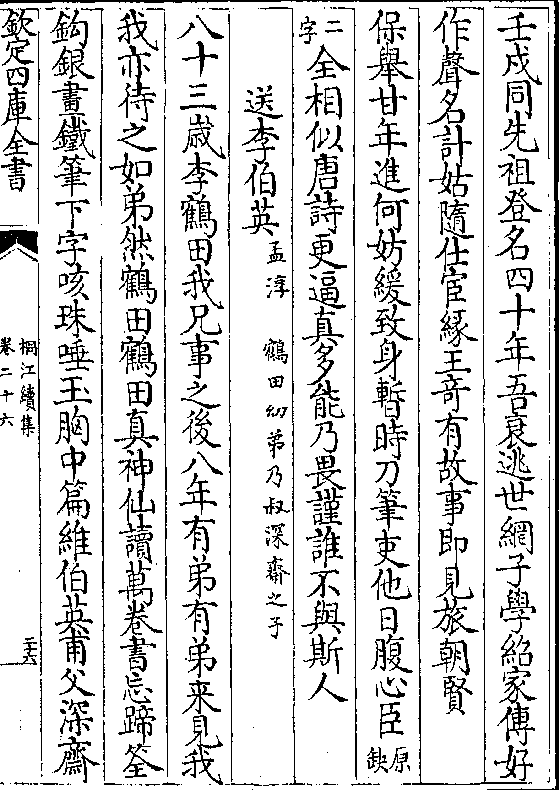 壬戌同先祖登名四十年吾衰逃世網子學紹家傳好
作聲名計姑隨仕宦縁王竒有故事即見旅朝賢
保舉廿年進何妨緩致身暫時刀筆吏他日腹心臣原缺
二字全相似唐詩更逼真多能乃畏謹誰不與斯人
送李伯英孟淳 鶴田幼弟乃叔深齋之子
八十三歳李鶴田我兄事之後八年有弟有弟来見我
我亦待之如弟然鶴田鶴田真神仙讀萬卷書忘蹄筌
鈎銀畫鐵筆下字咳珠唾玉胸中篇維伯英甫父深齋
欽定四庫全書
桐江續集
卷二十六
二六